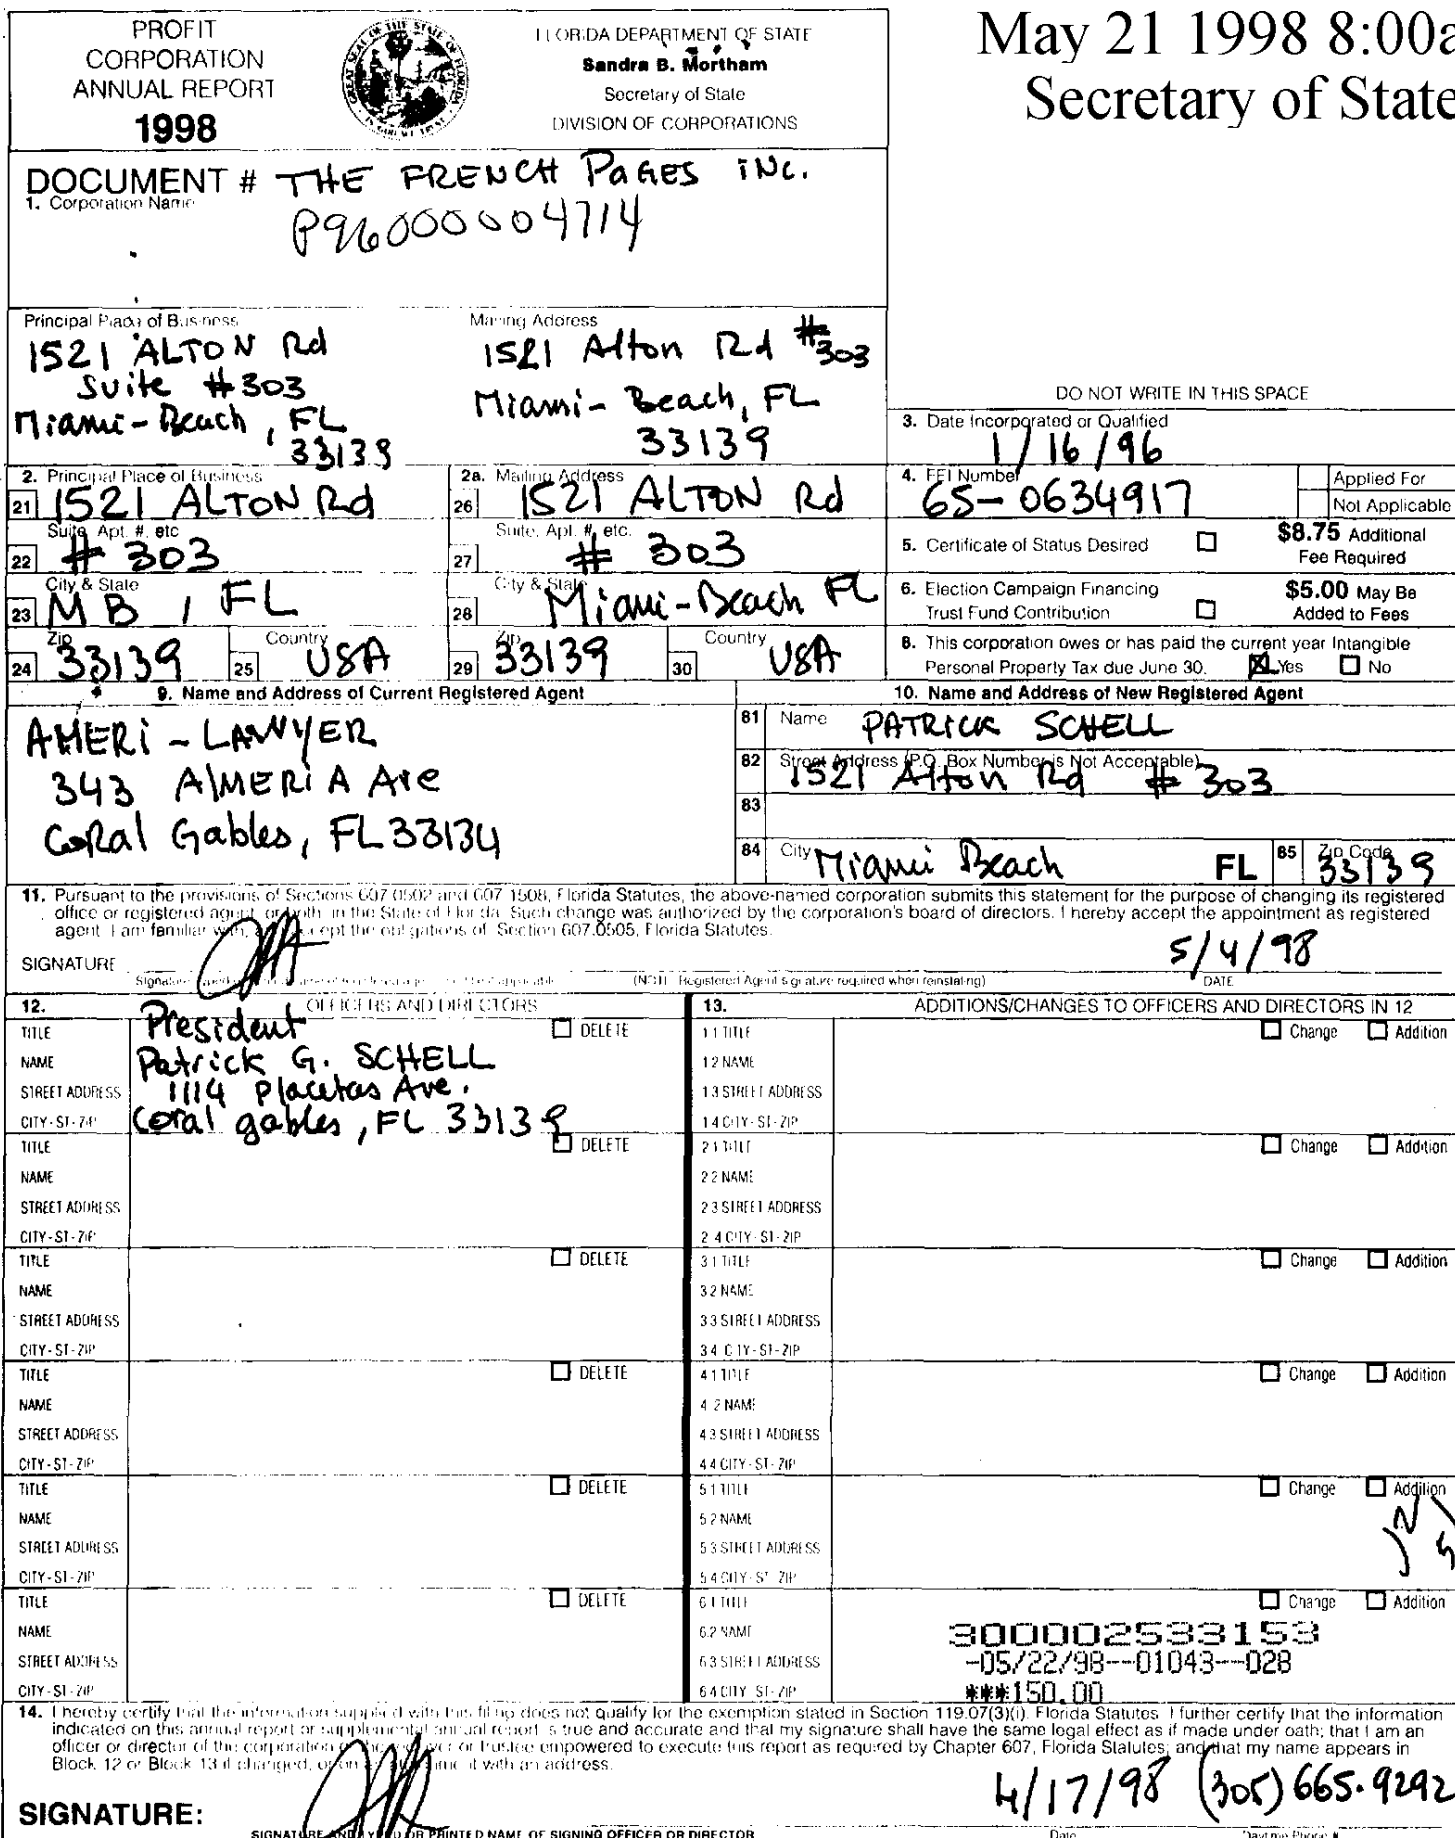 PROFIT
CORPORATION
ANNUAL REPORT
1998
GREAT SEAL OF THE STATE OF FLORIDA
IN GOD WE TRUST
FLORIDA DEPARTMENT OF STATE
Sandra B. Mortham
Secretary of State
DIVISION OF CORPORATIONS
May 21 1998 8:00a
Secretary of State
DOCUMENT # THE FRENCH PAGES INC.
1. Corporation Name
P96000004714
Principal Place of Business
1521 ALTON Rd
Suite #303
Miami-Beach, FL
33139
Mailing Address
1521 Alton Rd #303
Miami-Beach, FL
33139
DO NOT WRITE IN THIS SPACE
3. Date Incorporated or Qualified
1/16/96
2. Principal Place of Business
21 1521 ALTON Rd
2a. Mailing Address
26 1521 ALTON Rd
4. FEI Number
65-0634917
Applied For
Not Applicable
Suite, Apt. #, etc
22 # 303
Suite, Apt. #, etc.
27 # 303
5. Certificate of Status Desired
$8.75 Additional
Fee Required
City & State
23 MB, FL
City & State
28 Miami-Beach FL
6. Election Campaign Financing
Trust Fund Contribution
$5.00 May Be
Added to Fees
Zip
24 33139
Country
25 USA
Zip
29 33139
Country
30 USA
8. This corporation owes or has paid the current year Intangible
Personal Property Tax due June 30. Yes No
9. Name and Address of Current Registered Agent
AMERI-LAWYER
343 AlMERiA Ave
Coral Gables, FL 33134
10. Name and Address of New Registered Agent
81 Name PATRICK SCHELL
82 Street Address (P.O. Box Number is Not Acceptable)
1521 Alton Rd # 303
83
84 City Miami Beach FL 85 Zip Code 33139
11. Pursuant to the provisions of Sections 607.0502 and 607.1508, Florida Statutes, the above-named corporation submits this statement for the purpose of changing its registered
office or registered agent, or both, in the State of Florida. Such change was authorized by the corporation's board of directors. I hereby accept the appointment as registered
agent. I am familiar with, and accept the obligations of, Section 607.0505, Florida Statutes.
SIGNATURE
5/4/98
(NOTE: Registered Agent signature required when reinstating)
DATE
12. OFFICERS AND DIRECTORS
13. ADDITIONS/CHANGES TO OFFICERS AND DIRECTORS IN 12
TITLE President DELETE
NAME Patrick G. SCHELL
STREET ADDRESS 1114 Placetas Ave.
CITY-ST-ZIP Coral gables, FL 33139
1.1 TITLE Change Addition
1.2 NAME
1.3 STREET ADDRESS
1.4 CITY-ST-ZIP
TITLE DELETE
NAME
STREET ADDRESS
CITY-ST-ZIP
2.1 TITLE Change Addition
2.2 NAME
2.3 STREET ADDRESS
2.4 CITY-ST-ZIP
TITLE DELETE
NAME
STREET ADDRESS
CITY-ST-ZIP
3.1 TITLE Change Addition
3.2 NAME
3.3 STREET ADDRESS
3.4 CITY-ST-ZIP
TITLE DELETE
NAME
STREET ADDRESS
CITY-ST-ZIP
4.1 TITLE Change Addition
4.2 NAME
4.3 STREET ADDRESS
4.4 CITY-ST-ZIP
TITLE DELETE
NAME
STREET ADDRESS
CITY-ST-ZIP
5.1 TITLE Change Addition
5.2 NAME
5.3 STREET ADDRESS
5.4 CITY-ST-ZIP
TITLE DELETE
NAME
STREET ADDRESS
CITY-ST-ZIP
6.1 TITLE Change Addition
6.2 NAME
6.3 STREET ADDRESS
6.4 CITY-ST-ZIP
300002533153
-05/22/98--01043--028
***150.00
14. I hereby certify that the information supplied with this filing does not qualify for the exemption stated in Section 119.07(3)(i), Florida Statutes. I further certify that the information
indicated on this annual report or supplemental annual report is true and accurate and that my signature shall have the same legal effect as if made under oath; that I am an
officer or director of the corporation or the receiver or trustee empowered to execute this report as required by Chapter 607, Florida Statutes; and that my name appears in
Block 12 or Block 13 if changed, or on an attachment with an address.
SIGNATURE:
4/17/98 (305) 665-9292
SIGNATURE AND TYPED OR PRINTED NAME OF SIGNING OFFICER OR DIRECTOR
Date
Daytime Phone #